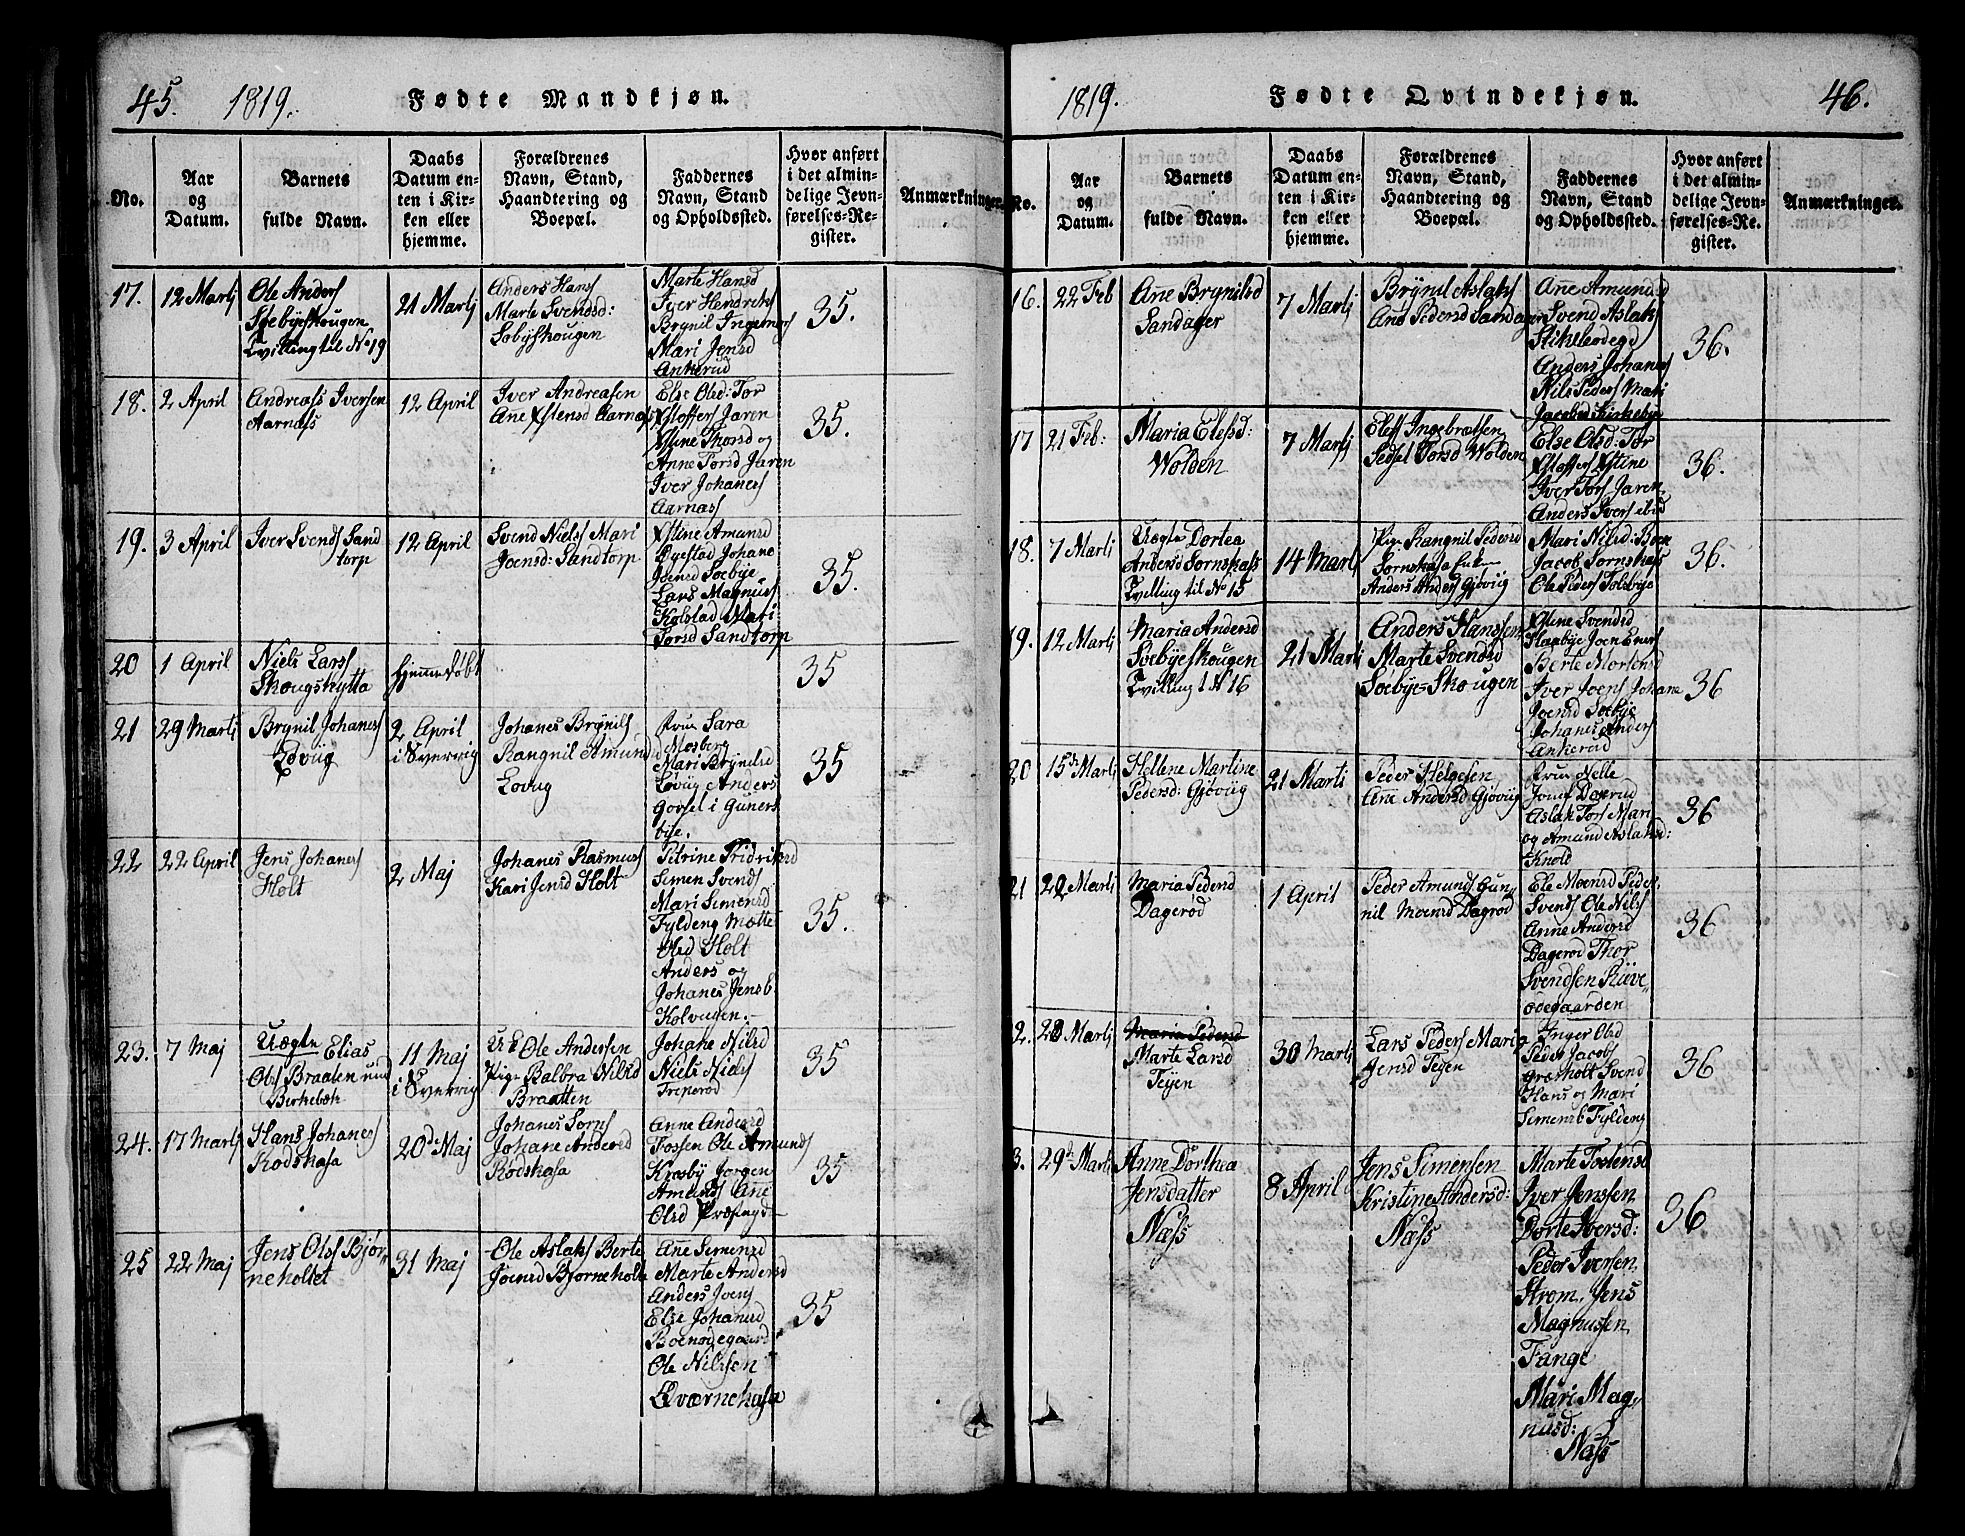 45. 1819. Fødte Mandkjøn.
No.
Aar
og
Datum.
Barnets
fulde Navn.
Daabs
Datum en-
ten i Kir-
ken eller
hjemme.
Forældrenes
Navn, Stand,
Haandtering og
Boepæl.
Faddernes
Navn, Stand
og Opholdssted.
Hvor anført
i det almin-
delige Jevn-
førelses-Re-
gister.
Anmærkninger.
17.
12 Martj
Ole Anders
Soebyeskougen
Tvilling til No 19
21 Martj
Anders Hans
Marte Svendsd:
Sobyskougen
Marte Hansd
Iver Hendriks
Brynil Ingemers
Mari Jensd
Ankerud
35.
18.
2 April
Andreass Iversen
Aarnæss
12 April
Iver Andreasen
Ane Xstensd Aarnæs
Else Olsd: Tor
Xstoffers Jaren
Xstine Thorsd og
Anne Torsd Jaren
Iver Johanes
Aarnass
35.
19.
3 April
Iver Svends Sand
torp
12 April
Svend Niels Mari
Joensd: Sandtorp
Xstine Amunsd
Øgestad Johane
Joensd Soebye
Lars Magnus
Kolstad Mari
Torsd Sandtorp
35.
20
1 April
Niels Larss
Skougshytta
hjemmedøbt
35
21
29 Martj
Brynil Johanes
Lovüg
2 April
i Sverrig
Johanes Brynils
Rangnil Amund
Lovug
Frue Sara
Mosberg
Mari Brynild
Lövüg Anders
Gorsel i Guners
bye.
35
22
22 April
Jens Johanes
Holt
2 Maj
Johanes Rasmus
Kari Jensd Holt
Petrine Fridriksd
Simen Svends
Mari Simensd
Fyldeng Mætte
Olsd Holt
Anders og
Johanes Jensb
Kolvugen.
35.
23.
7 Maj
Uægte Elias
Ols Braaten und
Birkebøk
11 Maj
i Sverrig
Ole Andersen
Pige Balbra Nilsd
Braatten
Johane Nilsd
Niels Niels
Freperod
35
24.
17 Martj
Hans Johanes
Rodskasa
20de Maj
Johanes Sorns
Johane Andersd
Rodskasa
Anne Andersd
Fossen Ole Amunds
Krosby Jorgen
Amunds Ane
Olsd Præstegd
35
25
22 Maj
Jens Ols Bjør
neholtet
31 Maj
Ole Aslaks Berte
Joensd Bjorneholte
Ane Simensd
Marte Andersd
Anders Ivers
Else Johansd
Boenødegaard
Ole Nilssen
Qværnehasa
35
1819. Fødte Qvindekjøn. 46.
No.
Aar
og
Datum.
Barnets
fulde Navn.
Daabs
Datum en-
ten i Kir-
ken eller
hjemme.
Forældrenes
Navn, Stand,
Haandtering og
Boepæl.
Faddernes
Navn, Stand
og Opholdssted.
Hvor anført
i det almin-
delige Jevn-
førelses-Re-
gister.
Anmærkninger.
16.
22 Feb
Ane Brynilsd
Sandager
7 Martj
Brynil Aslaks
Ane Pedersd Sandager
Ane Amunded
Svend Aslaks
Stikleødegd
Anders Johanes
Nils Peders Mari
Jacobsd Kirkebye
36.
17
21 Feb:
Maria Elefsd:
Wolden
7 Martj
Eleff Ingebretsen
Sedsel Torsd Wolden
Else Olsd: Tor
Xstoffers Xstine
Iver Tors Jaren
Anders Ivers
36.
18.
7 Martj
Uægte Dortea
Andersd Sornskass
Tvilling til No 15
14 Martj
Pige Rangnil Pedersd
Sornskasa
Anders Anders Gjøvüg
Mari Nilsd: Boe
Jacob Sornskass
Ole Peders Tolebye
36.
19.
12 Martj
Maria Andersd
Svebyeskougen
Tvilling t No 16
21 Martj
Anders Hanssen
Marte Svendsd
Soebye-Skougen
Xstine Svendsd
Haabye Joen Eners
Berte Mortensd
Iver Joens Johane
Joensd Soebye
Johanes Anders
Ankerud
36
20
15de Martj
Hellene Martine
Pedersd: Gjøvüg
21 Martj
Peder Helgesen
Ane Andersd Gjøvüg
Frue Nelle
Josef Dagerud
Aslak Tors Mari
og Amund Aslaksd:
Knold
36
21
22 Martj
Maria Pedersd
Dagerod
1 April
Peder Amunds Gun
nil Moensd Dagrod
Ele Moensd Peder
Svends Ole Nils
Anne Andersd
Dagerod Thor
Svendsen Stüve
ödegaarden
36
2.
28 Martj
Maria Pedersd
Marte Larsd
Teijen
30 Martj
Lars Peders Mari
Jensd Teijen
Inger Olsd
Peder Jacobs
Græsholt Svend
Hans og Mari
Simensb Fyldeng
36
3.
29de Martj
Anne Dorthea
Jensdatter
Næss
8 April
Jens Simensen
Kristine Andersd:
Næss
Marte Tostensd
Iver Jenssen
Dorte Iversd:
Peder Iversen
Strom. Jens
Magnussen
Tange
Mari Mag
nusd:
Næss
36